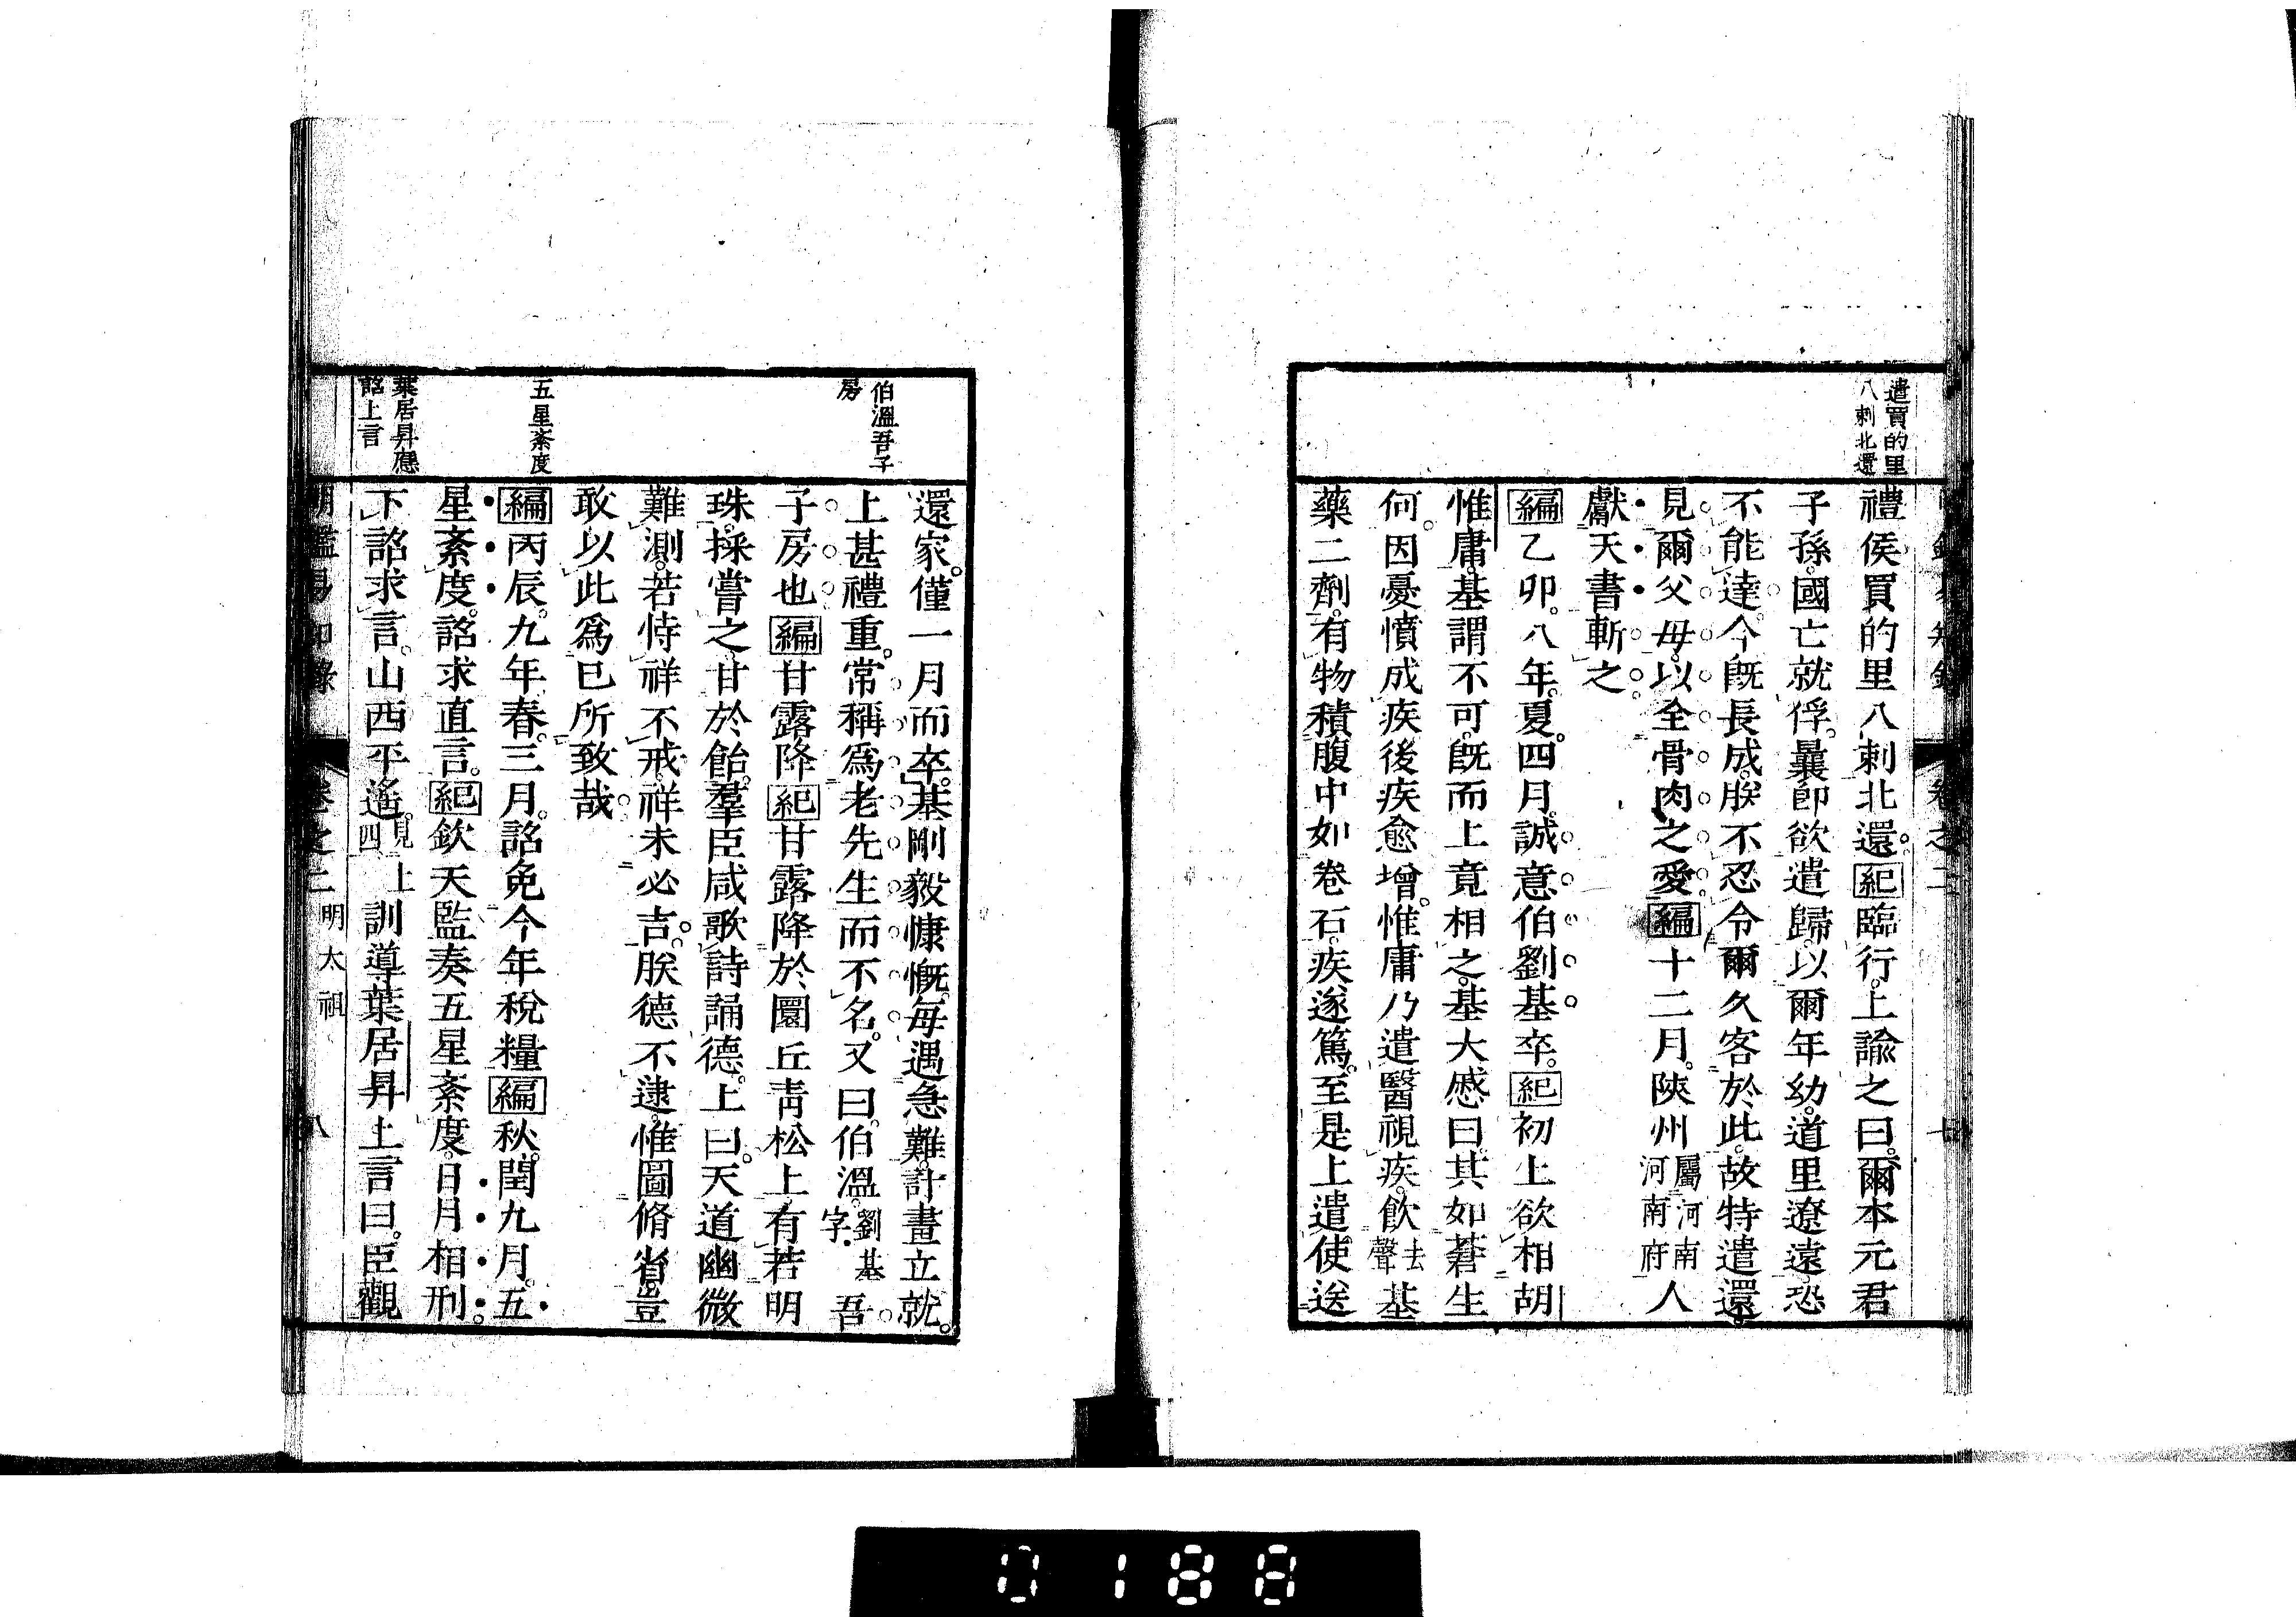 遣買的里
八剌北還
禮侯買的里八剌北還。紀臨行。上諭之曰。爾本元君
子孫。國亡就俘。曩卽欲遣歸。以爾年幼。道里遼遠。恐
不能達。今旣長成。朕不忍令爾久客於此。故特遣還。
見爾父母。以全骨肉之愛。編十二月。陝州屬河南河南府人
獻天書斬之。
編乙卯。八年。夏。四月。誠意伯劉基卒。紀初上欲相胡
惟庸。基謂不可。旣而上竟相之。基大慼曰。其如蒼生
何。因憂憤成疾後疾愈增。惟庸乃遣醫視疾。飲去聲基
藥二劑。有物積腹中如卷石。疾遂篤。至是上遣使送
卷之二
七
伯溫吾子
房
五星紊度
葉居昇應
詔上言
還家。僅一月而卒。基剛毅慷慨。每遇急難。計畫立就。
上甚禮重。常稱爲老先生而不名。又曰。伯溫。劉基字吾
子房也編甘露降紀甘露降於圜丘靑松上有若明
珠。採嘗之。甘於飴。羣臣咸歌詩誦德。上曰。天道幽微
難測。若恃祥不戒。祥未必吉。朕德不逮。惟圖脩省。豈
敢以此爲已所致哉。
編丙辰。九年春。三月。詔免今年稅糧編秋。閏九月。五
星紊度。詔求直言。紀欽天監奏五星紊度。日月相刑。
下詔求言。山西平遙。見上四訓導葉居昇上言曰。臣觀
明鑑易知錄 卷之二 明太祖 八
0188